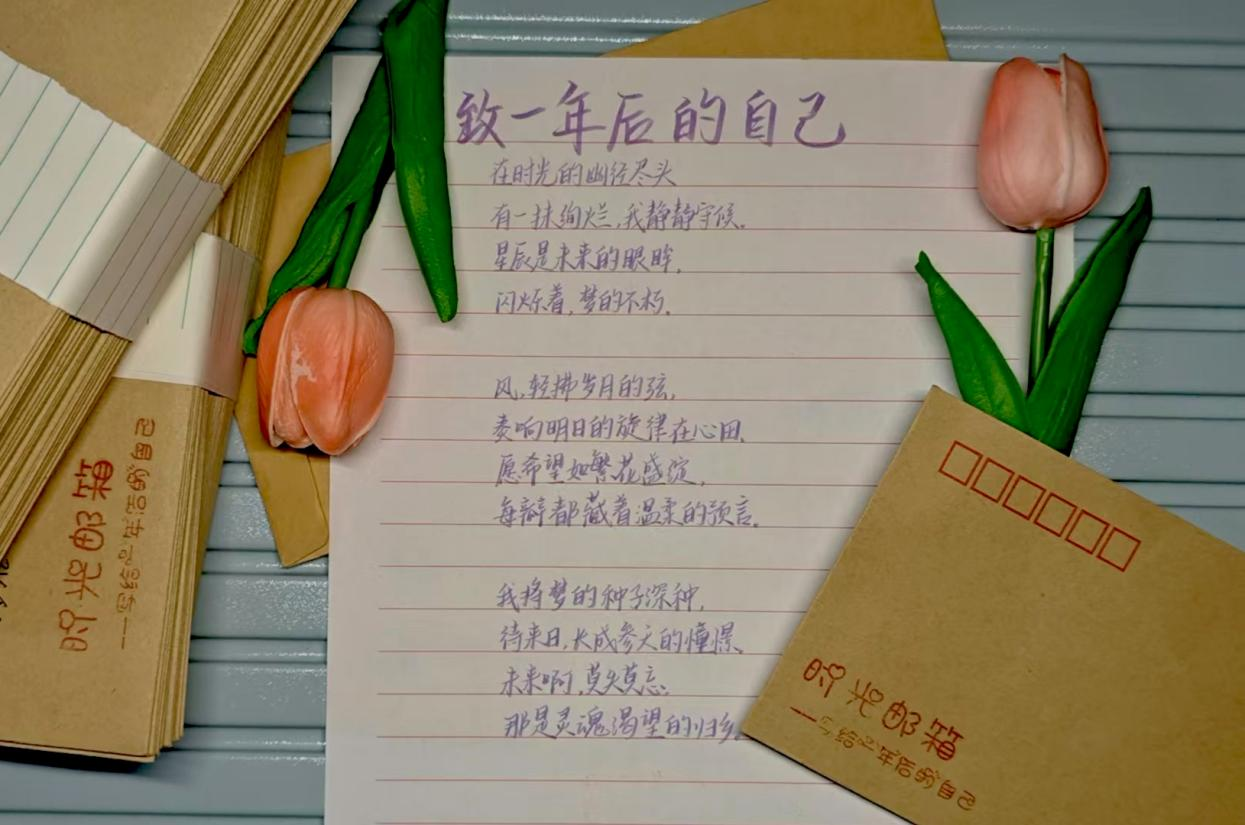 致一年后的自己
在时光的幽径尽头
有一抹绚烂,我静静守候。
星辰是未来的眼眸,
闪烁着,梦的不朽。
风,轻拂岁月的弦,
奏响明日的旋律在心田、
愿希望如繁花盛绽,
每瓣都藏着温柔的预言。
我将梦的种子深种,
待来日,长成参天的憧憬、
未来啊,莫失莫忘.
那是灵魂渴望的归乡
时光邮箱
——写给一年后的自己
时光邮箱
——写给一年后的自己